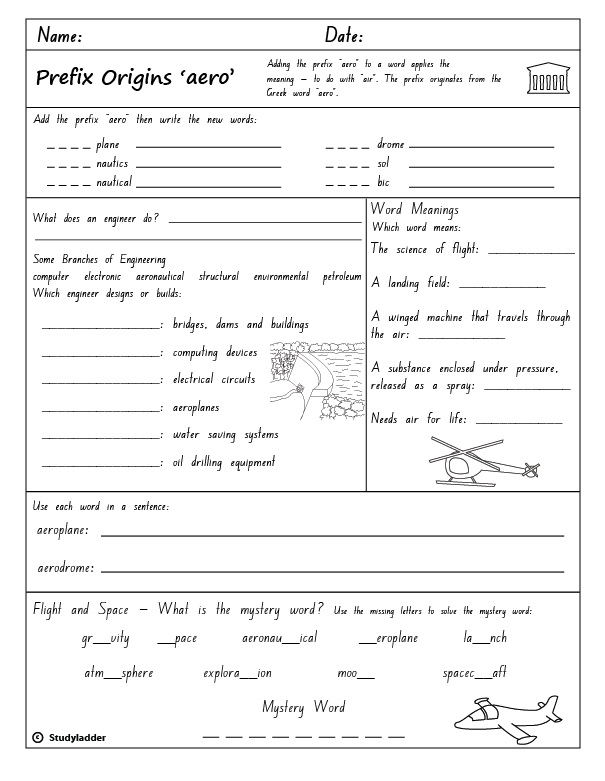 Name: Date:
Prefix Origins ‘aero’
Adding the prefix “aero” to a word applies the
meaning – to do with “air”. The prefix originates from the
Greek word “aero”.
Add the prefix “aero” then write the new words:
_ _ _ _ plane ____________ _ _ _ _ drome ____________
_ _ _ _ nautics ____________ _ _ _ _ sol ____________
_ _ _ _ nautical ____________ _ _ _ _ bic ____________
What does an engineer do? ____________
Some Branches of Engineering
computer electronic aeronautical structural environmental petroleum
Which engineer designs or builds:
____________: bridges, dams and buildings
____________: computing devices
____________: electrical circuits
____________: aeroplanes
____________: water saving systems
____________: oil drilling equipment
Word Meanings
Which word means:
The science of flight: ____________
A landing field: ____________
A winged machine that travels through
the air: ____________
A substance enclosed under pressure,
released as a spray: ____________
Needs air for life: ____________
Use each word in a sentence:
aeroplane: ____________
aerodrome: ____________
Flight and Space – What is the mystery word? Use the missing letters to solve the mystery word:
gr__vity __pace aeronau__ical __eroplane la__nch
atm__sphere explora__ion moo__ spacec__aft
Mystery Word
_ _ _ _ _ _ _ _ _
© Studyladder